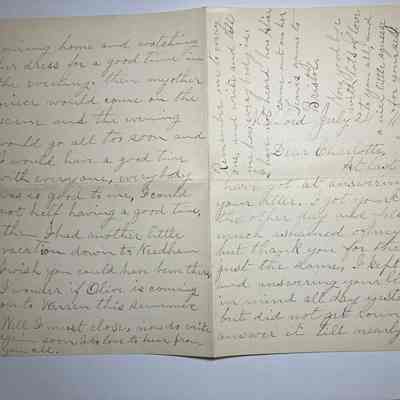 July 21
Dear Charlotte,
At last
have got at answering
your letter. I got your
the other day and
much
but thank you for the
just the same, I kept
and answering your
in mind all day
but did not get
answer it till nearly
coming home and watching
her dress for a good time in
the evening. then my other
would come on the
scene and the evening
would go all too soon and
I would have a good time
with everyone, everybody
was so good to me, I could
not help having a good time,
then I had another little
vacation down to Needham
wish you could have been there,
I wonder if Olive is coming
on to Warren this summer
Well I must close, now do write
again soon as love to hear from
you all.
Remember me to every
one, and write and tell
me how everybody is
have not heard how
came out on her
to
Bristol
with lots of love
to you all, and
a nice little squeeze
for yourself